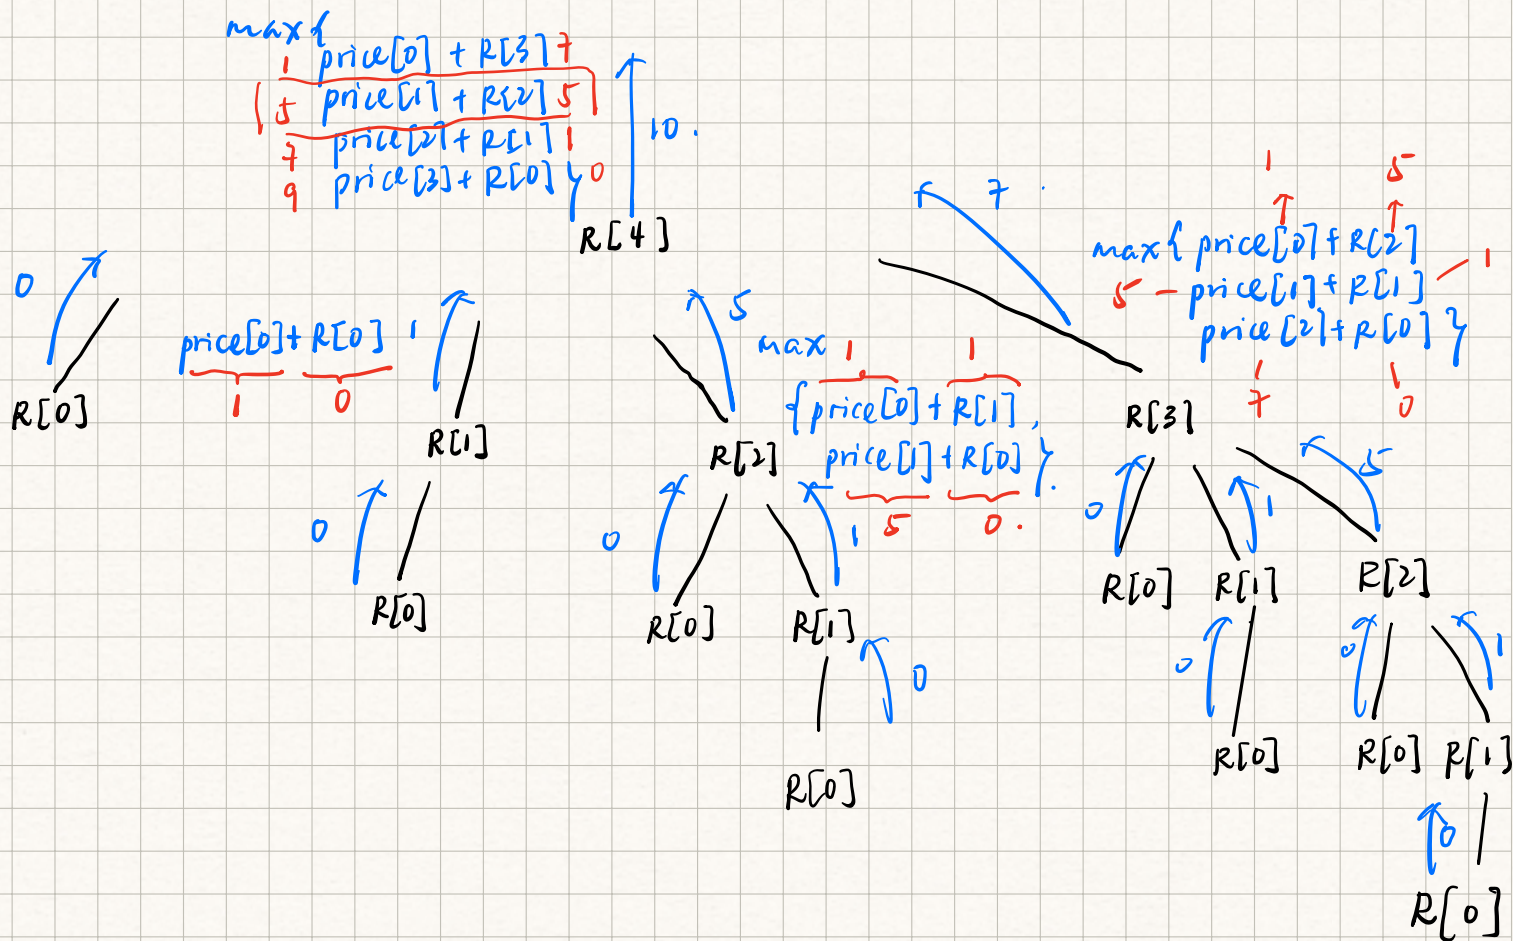 max{
1 price[0] + R[3] 7
5 price[1] + R[2] 5
7 price[2] + R[1] 1
9 price[3] + R[0] } 0
10.
R[4]
0
R[0]
price[0] + R[0] 1
1 0
R[1]
0
R[0]
5
max
1 1
{price[0] + R[1],
price[1] + R[0] }.
5 0.
R[2]
0 1
R[0] R[1]
0
R[0]
7
1 5
max{ price[0] + R[2]
5 price[1] + R[1] 1
price[2] + R[0] }
7 0
R[3]
0 1 5
R[0] R[1] R[2]
0 0 1
R[0] R[0] R[1]
0
R[0]